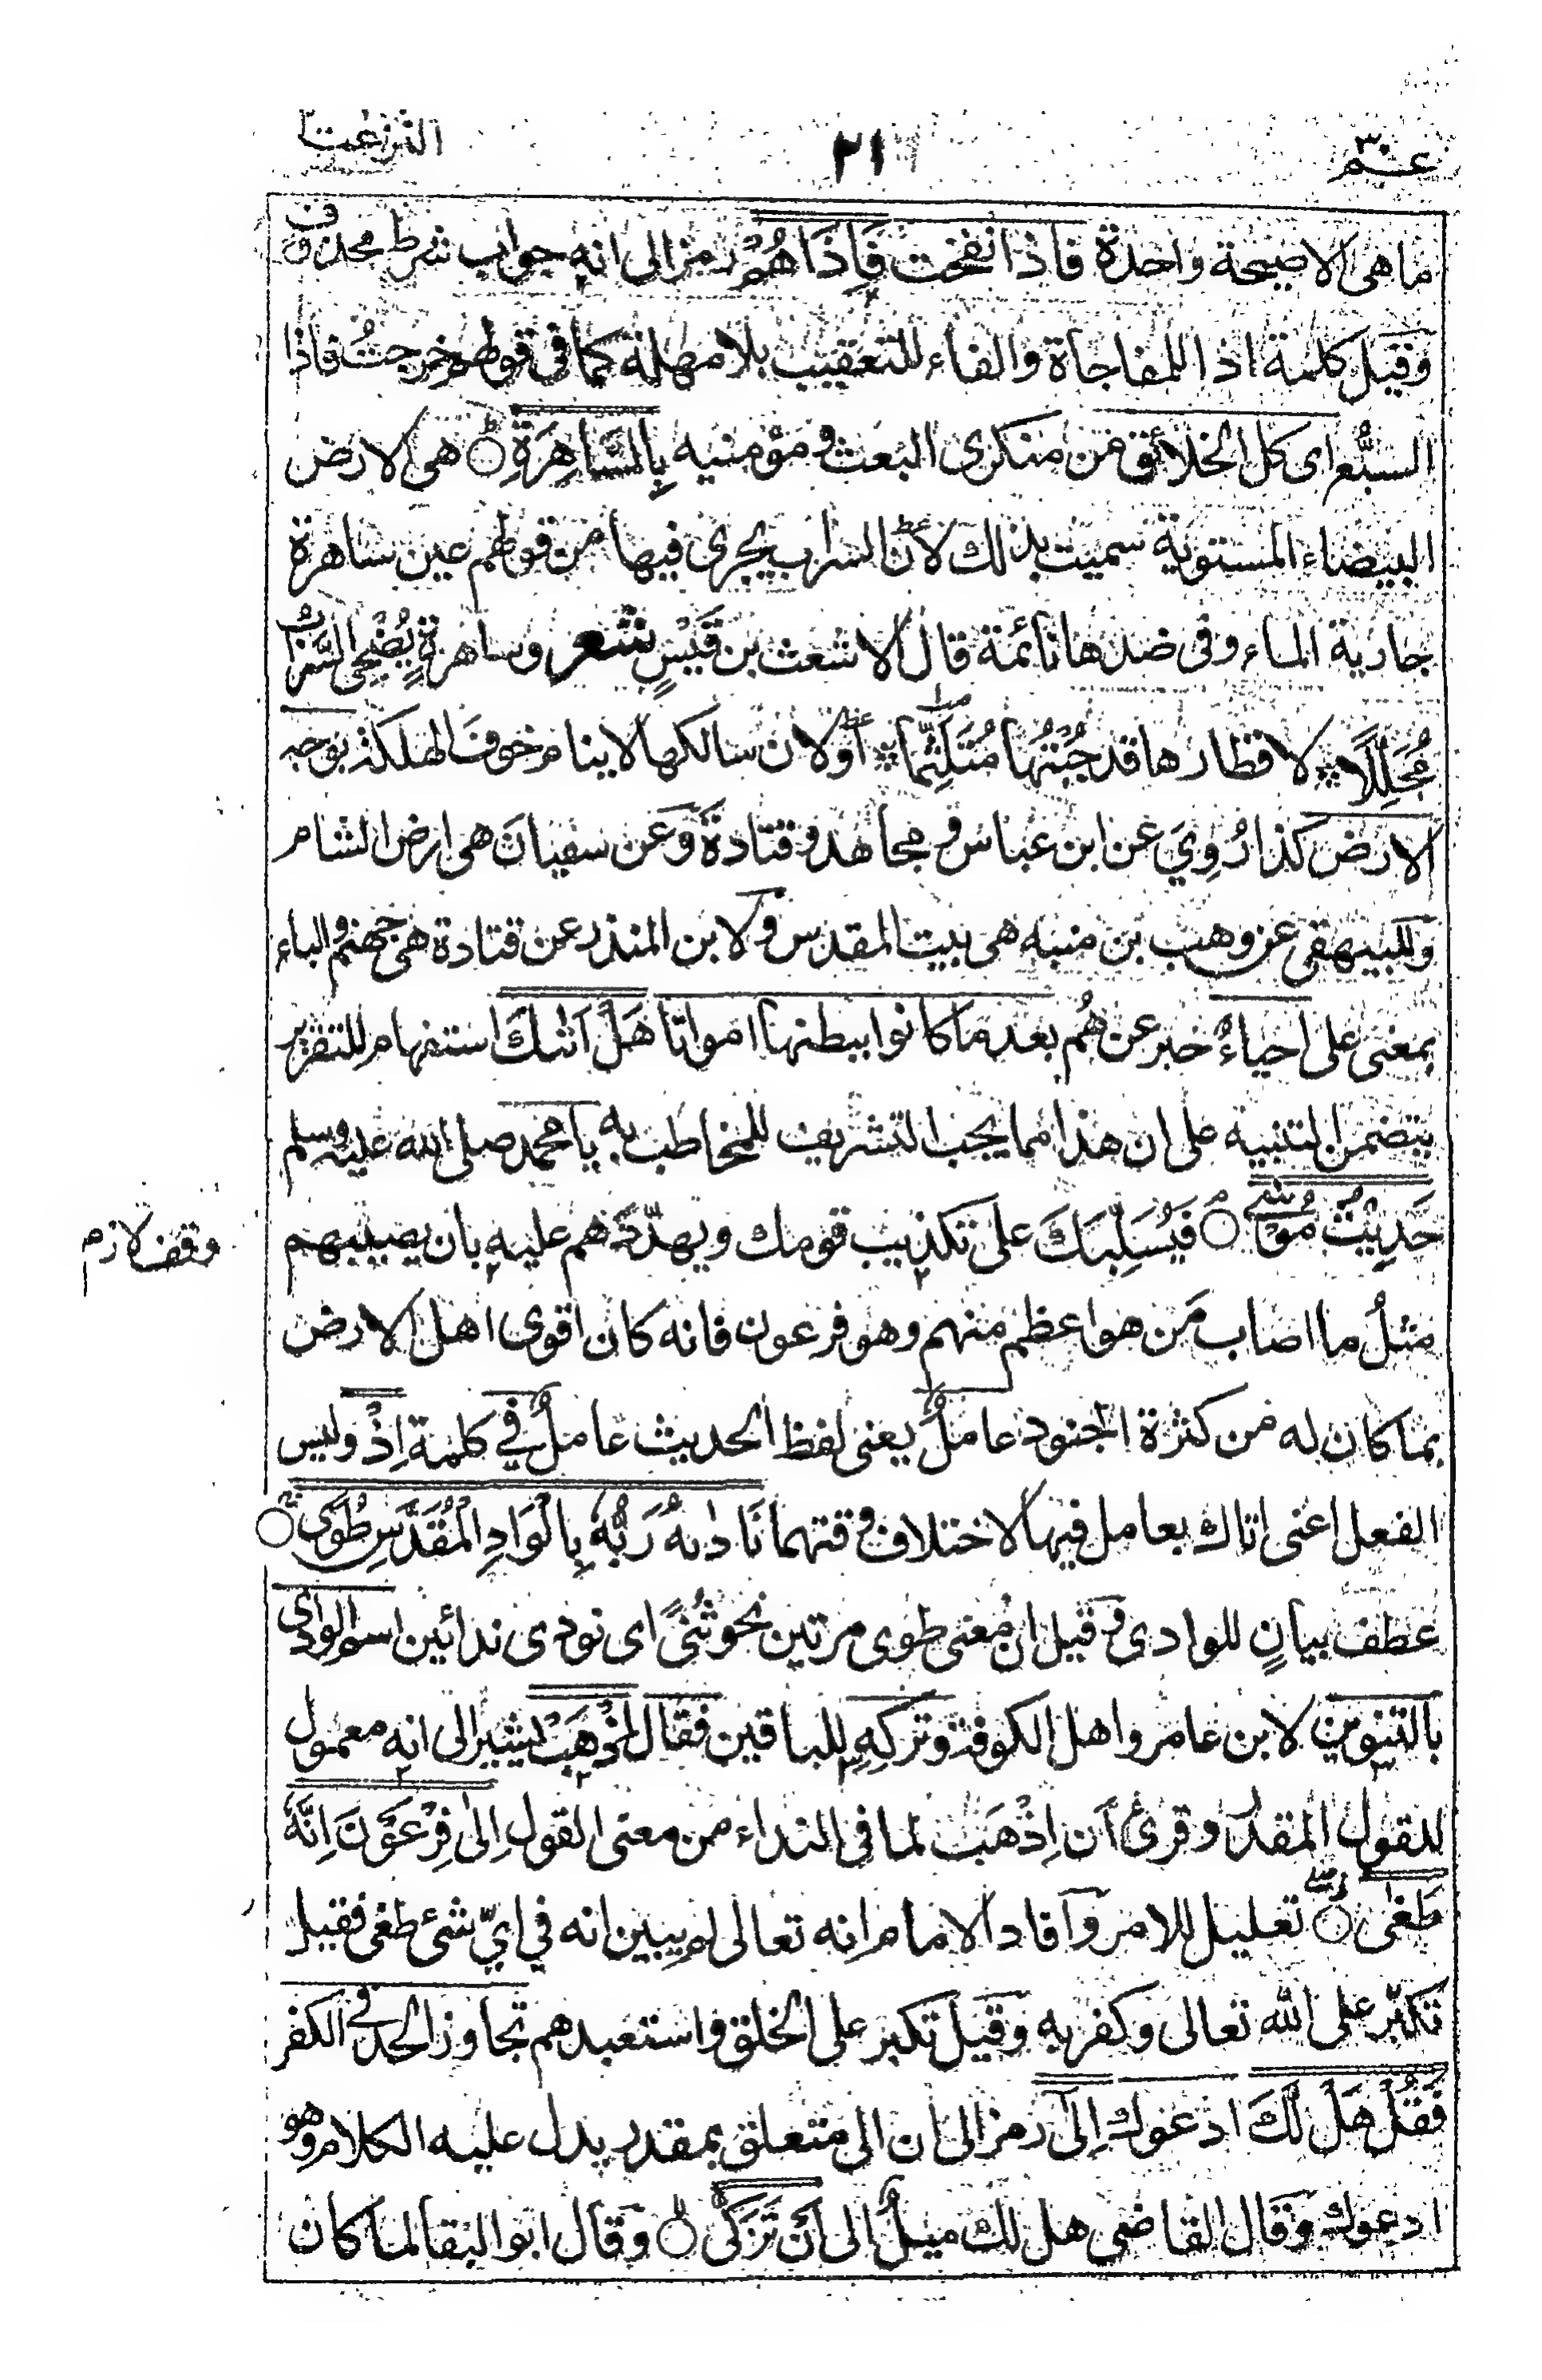 عـم ٣٠
٢١
النزعت
ما هى الا صيحة واحدة فاذا نفخت فَاِذَا هُمْ رمز الى انه جواب شرط محذوف
وقيل كلمة اذا للمفاجاة والفاء للتعقيب بلا مهلة كما فى قولهم خرجتُ فاذا
السبُع اى كل الخلائق من منكرى البعث و مؤمنيه بِالسَّاهِرَةِ ۝ هى الارض
البيضاء المستوية سميت بذلك لان السراب يجرى فيها من قولهم عين ساهرة
جارية الماء وفى ضدها نائمة قال الاشعث بن قَيْسٍ شعر وساهرةٍ يُضْحِى السَّرَابُ
مُجَلِّلًا ٭ لاقطارها قد جُبْتُهَا مُتَلَثِّمًا ٭ اَو لان سالكها لا ينام خوفَ الهلكة بوجه
الارض كذا رُوِيَ عن ابن عباس و مجاهد و قتادة وَعن سفيانَ هى ارض الشام
وللبيهقى عن وهب بن منبه هى بيت المقدس ولابن المنذر عن قتادة هى جهنم والباء
بمعنى على احياءٌ خبر عن هُم بعد ما كانوا ببطنها امواتا هَلْ اَتٰىكَ استفهام للتقرير
يتضمن التنبيه على ان هذا مما يجب التشريف للمخاطب به يا محمد صلى الله عليه وسلم
حَدِيْثُ مُوْسٰى ۝ فيُسَلِّيكَ على تكذيب قومك ويهدّدهم عليه بان يصيبهم
وقف لازم
مثلُ ما اصاب مَن هو اعظم منهم وهو فرعون فانه كان اقوى اهل الارض
بما كان له من كثرة الجنود عاملٌ يعنى لفظ الحديث عاملٌ فى كلمة اِذْ وليس
الفعل اعنى اتاك بعامل فيها لاختلاف وقتهما نَادٰىهُ رَبُّهٗ بِالْوَادِ الْمُقَدَّسِ طُوًى ۝
عطف بيانٍ للوادى وقيل ان معنى طوى مرتين نحو ثُنًى اى نودى ندائين اسم الوادى
بالتنوين لابن عامر واهل الكوفة وتركهِ للباقين فقال اِذْهَبْ يشير الى انه معمول
للقول المقدر وقرئ اَن اِذْهَبْ لما فى النداء من معنى القول اِلٰى فِرْعَوْنَ اِنَّهٗ
طَغٰى ۝ تعليل للامر وَافاد الامام انه تعالى لم يبين انه فى ايّ شئ طغى فقيل
تكبّر على الله تعالى وكفر به وَقيل تكبر على الخلق واستعبدهم تجاوز الحد فى الكفر
فَقُلْ هَلْ لَّكَ ادعوك اِلٰى رمز الى ان الى متعلق بمقدر يدل عليه الكلام وهو
ادعوك وَقال القاضى هل لك ميلٌ الى اَنْ تَزَكّٰى ۝ وَقال ابو البقا لما كان